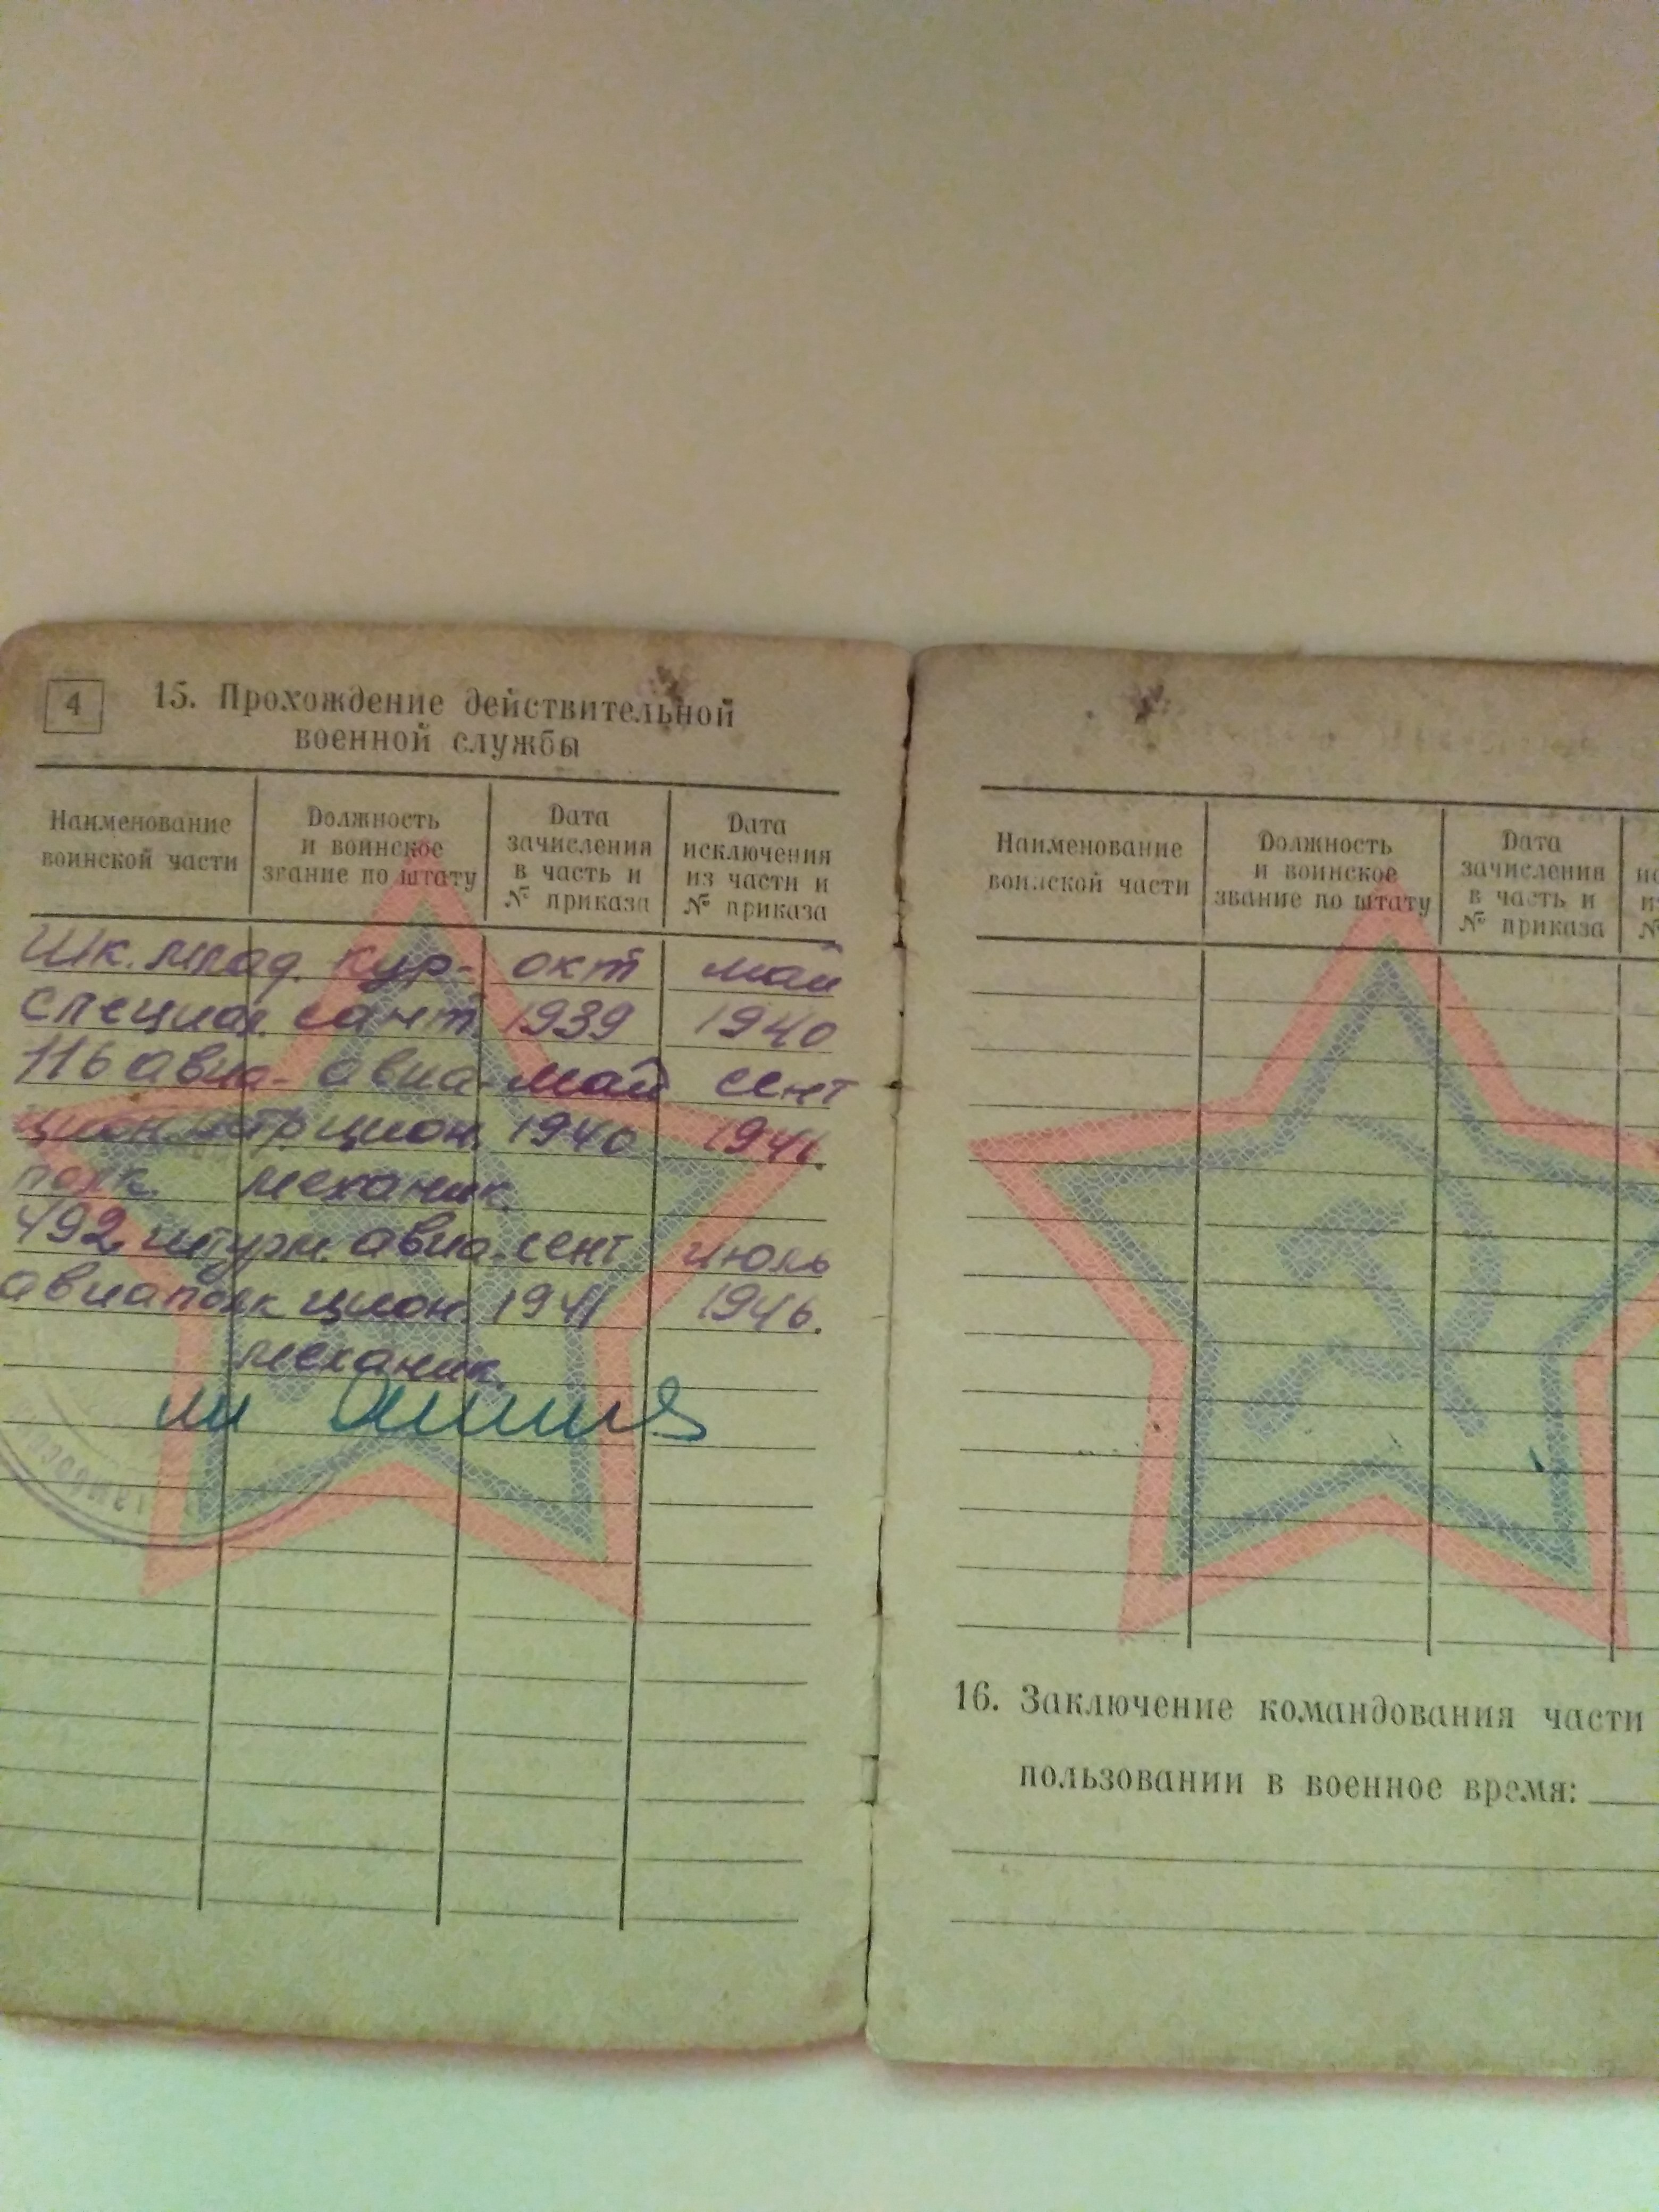 4
15. Прохождение действительной
военной службы
Наименование воинской части
Должность и воинское звание по штату
Дата зачисления в часть и № приказа
Дата исключения из части и № приказа
Шк. млад. кур- окт май
специал. сант 1939 1940
116 авиа- авиа- май сент
цион. цион. 1940 1941.
полк. механик.
492 штурм. авиа- сент июль
авиаполк цион. 1941 1946.
механик.
Наименование воинской части
Должность и воинское звание по штату
Дата зачисления в часть и № приказа
16. Заключение командования части
пользовании в военное время: